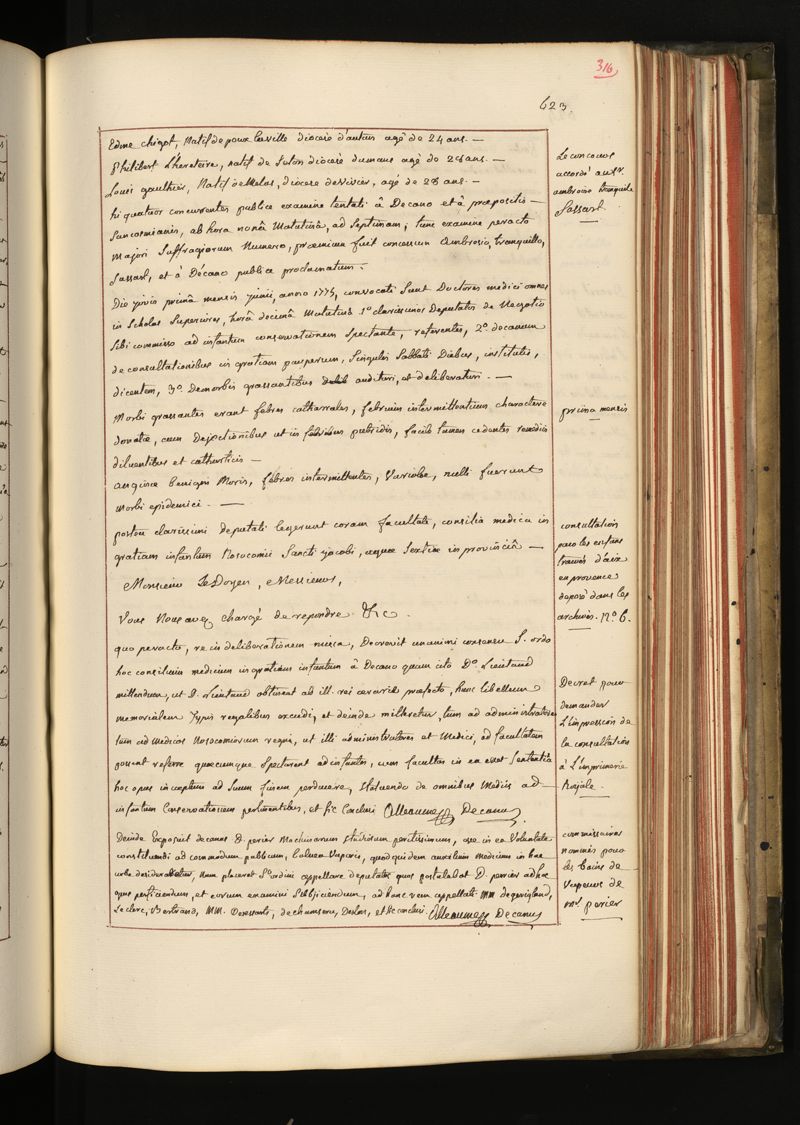 316
623.
Edme Chigot, Natif de poux laville diocèse d'autun agé de 24 ans. —
Philibert Lhéreteire, natif de Salon diocèse dumans agé de 28 ans. —
Louis gaulthier, Natif de Melas, diocèse de Vivier, agé de 28 ans. —
hi quatuor concurrentes publice examine tentati à Decano et à præpositis —
Sancosmianis, ab hora nonâ Matutinâ, ad Septimam; tunc examine peracto
majori Suffragiorum Numero, præmium fuit concessum Ambrosio, tranquillo,
Sassard, et à Décano publice proclamatum.
Le concours
accordé au Sr.
ambroise tranquile
Sassard.
Die jovis primâ mensis junii, anno 1775, convocati Sunt Doctores medici omnes
in Scholas Superiores, horâ decimâ Matutinâ 1o clarissimos Deputatos de Negotio
Sibi commisso ad infantum conservationem Spectante, referentes, 2o. decanum
de consultationibus in gratiam pauperum, Singulis Sabbati Diebus, institutis,
dicentem, 3o. De morbis grassantibus audituri, et deliberaturi. —
Morbi grassantes erant febres catharrales, febrium intermittentium charactere
donatæ, cum Dejectionibus ut in putridis, facile tamen cedentes remediis
diluentibus et catharticis —
prima mensis
anginæ benigni Moris, febres intermittentes, Variolæ, nulli fuerunt
morbi epidemici. —
postea clarissimi deputati legerunt coram facultate, consilia medica in
gratiam infantum Nosocomii Sancti jacobi, aquæ Sextiæ in provinciâ —
consultation
pour les enfans
trouvés d'aix
en provence
deposé dans les
archives. No. 6.
Monsieur Le Doyen, Messieurs,
Vous Nous avez chargé de repondre &c
quo peracto, re in deliberationem missa, Decrevit unanimi consensu S. ordo
hoc consilium medicum in gratiam infantum à Decano quam cito Do. Lieutaud
mittendum, ut D. Lieutaud obtineat ab ill. rei ærariæ præfecto, hunc libellum
memorialem typis regalibus excudi, et deinde mitteretur, tum ad administratores
tum ad medicos Nosocomiorum regni, ut illi administratores et Medici, ad facultatem
possent referre quæcumque Spectarent ad infantes, cum facultas in eâ esset Sententiâ
hoc opus inceptum ad Suum finem perducere, Statuendo de omnibus Mediis ad
infantum Conservationem pertinentibus, et sic Conclusi Alleaume Decanus.
Decret pour
demander
L'impression de
la consultation
à L'imprimerie
Royale.
Deinde Exposuit decanus D. perier Machinarum studiorum peritissimum, esse in eâ Voluntate
constituendi ad commodum publicum, balnea Vaporis, quod quidem auxilium Medicum in hac
urbe desideratur, Num placeret S. ordini appellare deputatos quos postulabat D. perier ad hoc
opus perficiendum, et eorum examini Subjiciendum, ad hanc rem appellati MM degevigland,
Leclerc, Bertrand, MM. Deressarts, de chamseru, Deslon, et sic conclusi. Alleaume Decanus
commissaires
nommés pour
les bains de
vapeurs de
Mr. perier